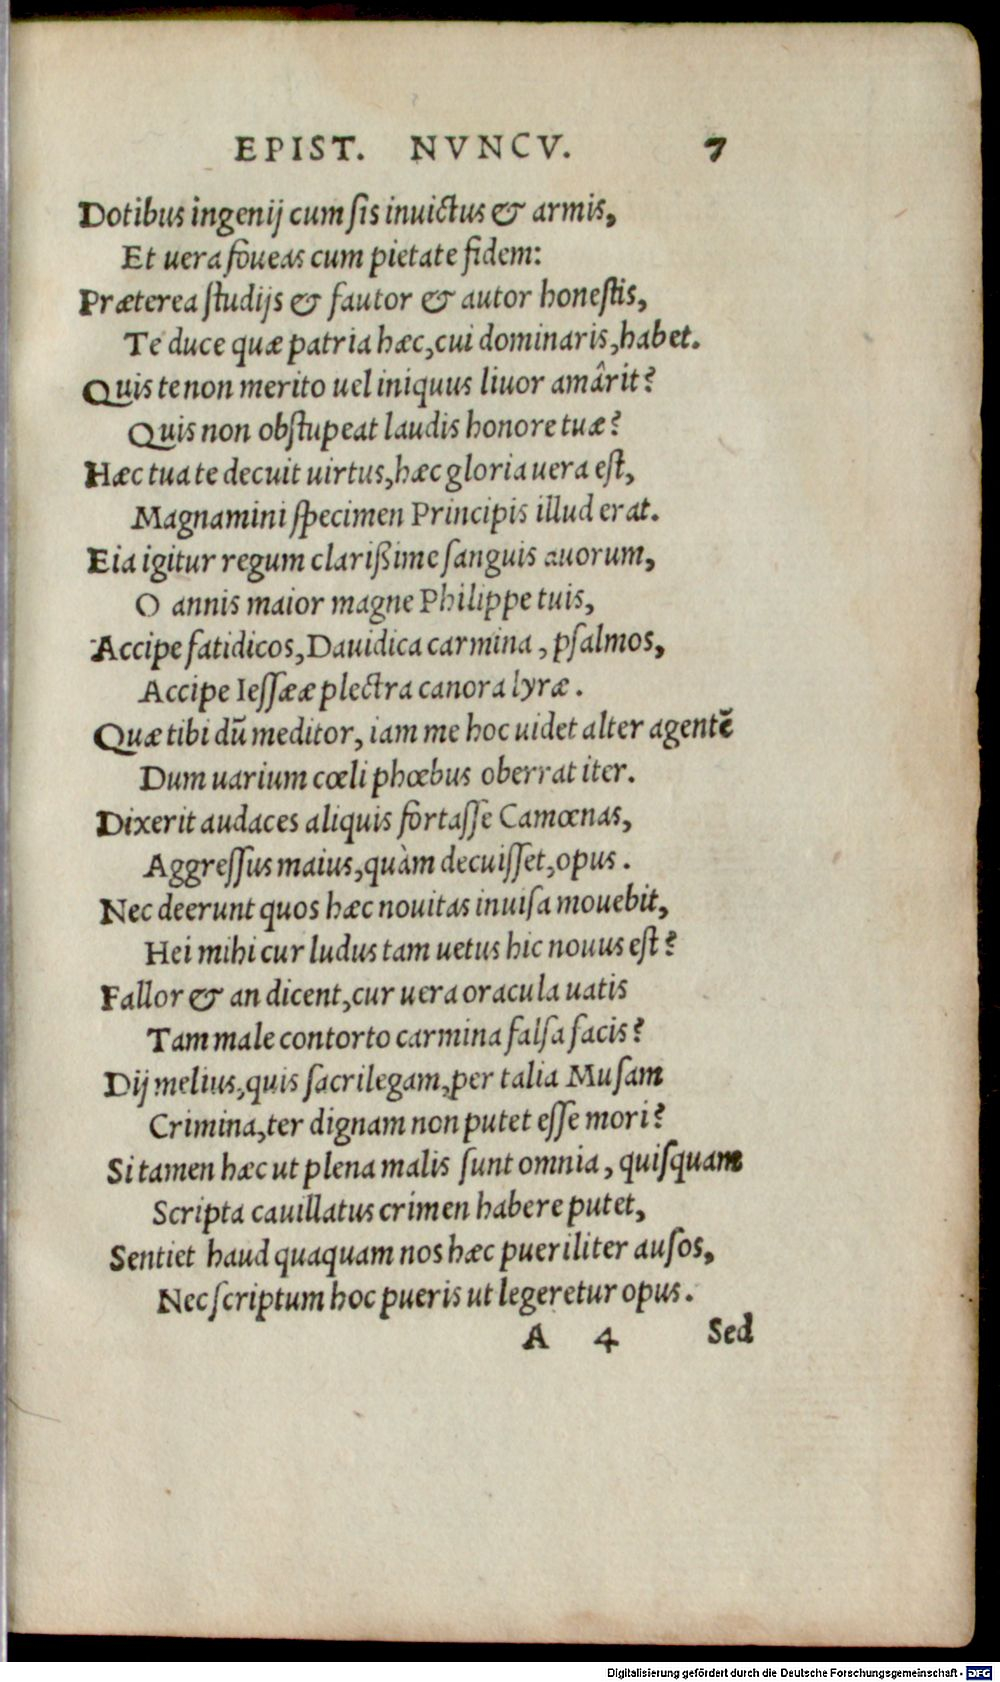 EPIST. NVNCV. 7
Dotibus ingenij cum ſis inuictus & armis,
Et uera foueas cum pietate fidem:
Præterea ſtudijs & fautor & autor honeſtis,
Te duce quæ patria hæc, cui dominaris, habet.
Quis te non merito uel iniquus liuor amârit?
Quis non obſtupeat laudis honore tuæ?
Hæc tua te decuit uirtus, hæc gloria uera eſt,
Magnamini ſpecimen Principis illud erat.
Eia igitur regum clarißime ſanguis auorum,
O annis maior magne Philippe tuis,
Accipe fatidicos, Dauidica carmina, pſalmos,
Accipe Ieſſææ plectra canora lyræ.
Quæ tibi dū meditor, iam me hoc uidet alter agentē
Dum uarium cœli phœbus oberrat iter.
Dixerit audaces aliquis fortaſſe Camœnas,
Aggreſſus maius, quàm decuiſſet, opus.
Nec deerunt quos hæc nouitas inuiſa mouebit,
Hei mihi cur ludus tam uetus hic nouus eſt?
Fallor & an dicent, cur uera oracula uatis
Tam male contorto carmina falſa facis?
Dij melius, quis ſacrilegam, per talia Muſam
Crimina, ter dignam non putet eſſe mori?
Si tamen hæc ut plena malis ſunt omnia, quiſquam
Scripta cauillatus crimen habere putet,
Sentiet haud quaquam nos hæc pueriliter auſos,
Nec ſcriptum hoc pueris ut legeretur opus.
A 4 Sed
Digitalisierung gefördert durch die Deutsche Forschungsgemeinschaft - DFG